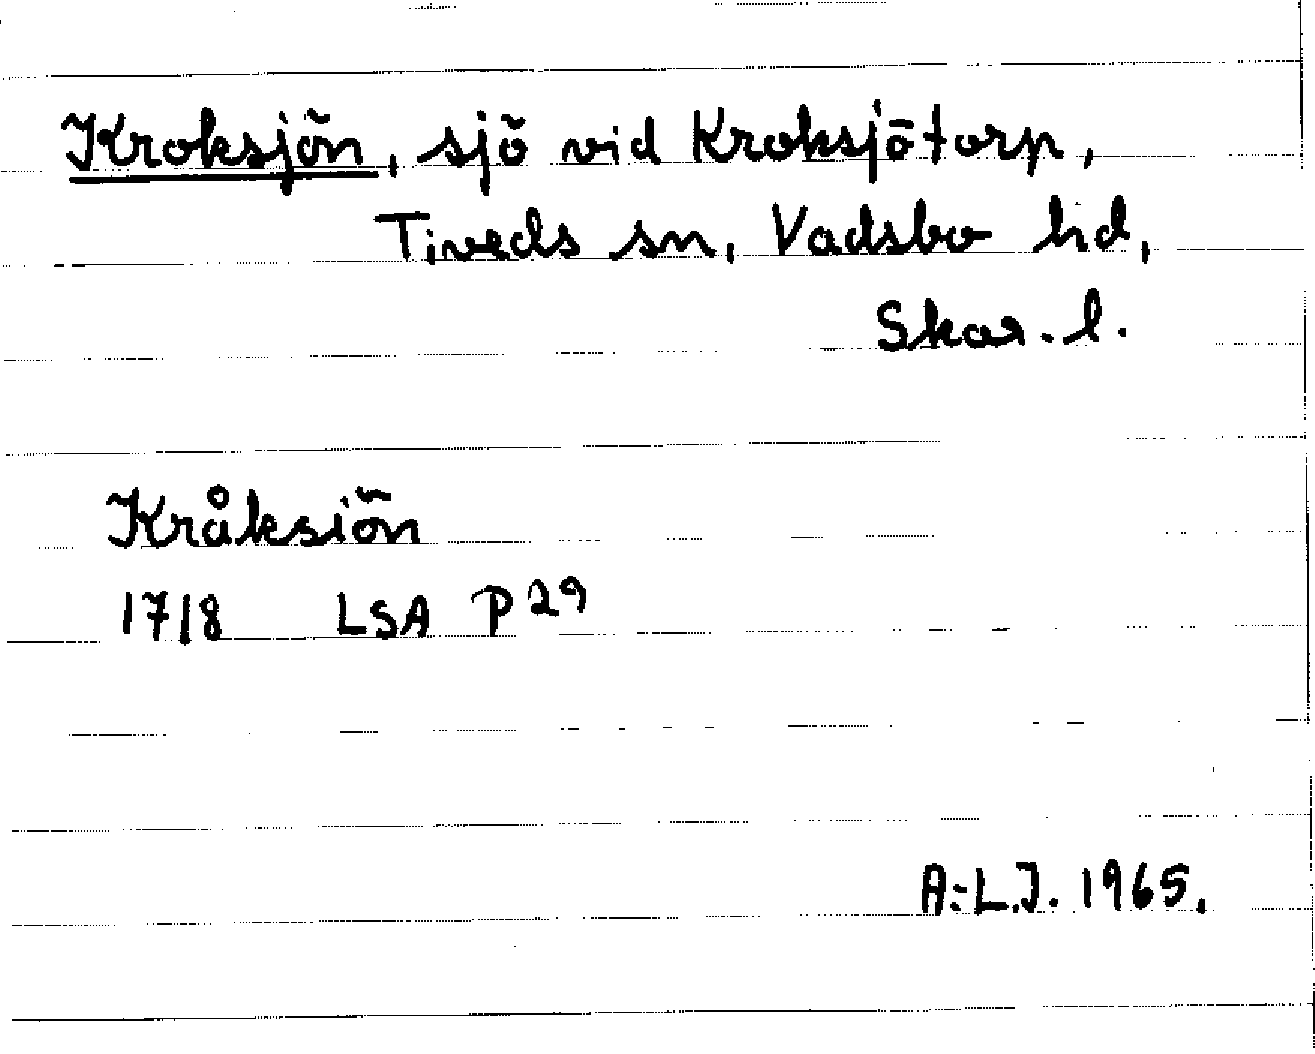 Kroksjön, sjö vid Kroksjötorp,
Tiveds sn, Vadsbo hd,
Skar. l.
Kråksiön
1718 LSA P 29
A:L.J. 1965.